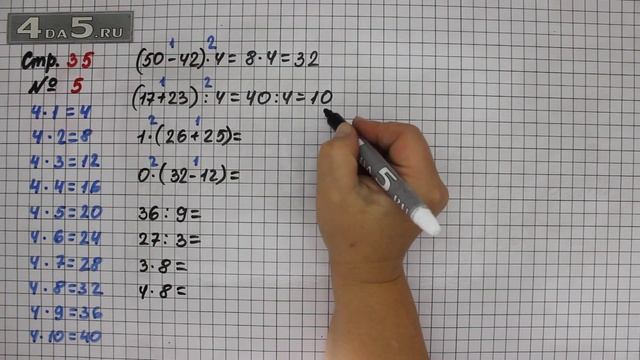 4DA5.RU
Стр. 35
№ 5
4·1=4
4·2=8
4·3=12
4·4=16
4·5=20
4·6=24
4·7=28
4·8=32
4·9=36
4·10=40
1 2
(50-42)·4=8·4=32
1 2
(17+23):4=40:4=10
2 1
1·(26+25)=
2 1
0·(32-12)=
36:9=
27:3=
3·8=
4·8=